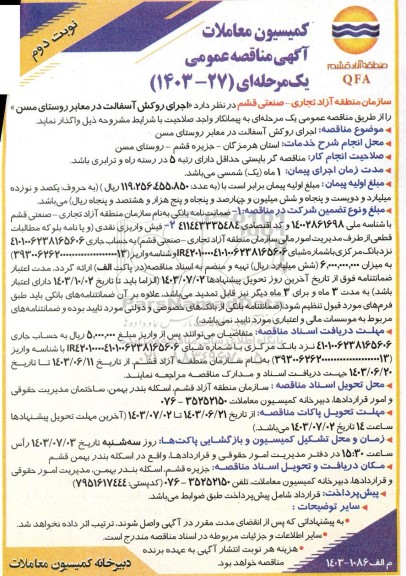 نوبت دوم
کمیسیون معاملات
آگهی مناقصه عمومی
یک مرحله‌ای (۲۷-۱۴۰۳)
منطقه آزاد قشم
QFA
سازمان منطقه آزاد تجاری - صنعتی قشم در نظر دارد «اجرای روکش آسفالت در معابر روستای مسن»
را از طریق مناقصه عمومی یک مرحله‌ای به پیمانکار واجد صلاحیت با شرایط مشروحه ذیل واگذار نماید.
موضوع مناقصه: اجرای روکش آسفالت در معابر روستای مسن
محل انجام شرح خدمات: استان هرمزگان - جزیره قشم - روستای مسن
صلاحیت انجام کار: مناقصه گر بایستی حداقل دارای رتبه ۵ در رسته راه و ترابری باشد.
مدت زمان اجرای پیمان: ۱ ماه (یک) شمسی می‌باشد.
مبلغ اولیه پیمان: مبلغ اولیه پیمان برابر است با (به عدد: ۱۱۹.۲۵۶.۴۵۵.۸۵۰ ریال) (به حروف یکصد و نوزده
میلیارد و دویست و پنجاه و شش میلیون و چهارصد و پنجاه و پنج هزار و هشتصد و پنجاه ریال) می‌باشد.
مبلغ و نوع تضمین شرکت در مناقصه: ۱- ضمانت نامه بانکی به نام سازمان منطقه آزاد تجاری - صنعتی قشم
با شناسه ملی ۱۴۰۰۲۸۶۱۶۹۸ و کد اقتصادی ۴۱۱۴۴۳۳۳۵۴۸۴ ۲- فیش واریزی نقدی (و یا نامه بلوکه مطالبات
قطعی از طرف مدیریت امور مالی سازمان منطقه آزاد تجاری - صنعتی قشم) به حساب جاری ۴۱۰۱۰۰۶۲۳۸۱۶۵۶۰۶
نزد بانک مرکزی با شماره شبای
به میزان ۶.۰۰۰.۰۰۰.۰۰۰ (شش میلیارد ریال) تهیه و منضم به اسناد مناقصه (در پاکت الف) ارائه گردد. مدت اعتبار
ضمانتنامه فوق از تاریخ آخرین روز تحویل پیشنهادها ۱۴۰۳/۰۷/۰۲ (الزاما باید تا تاریخ ۱۴۰۳/۱۰/۰۲ دارای اعتبار
باشد) به مدت ۳ ماه و برای ۳ ماه دیگر نیز قابل تمدید می‌باشد. علاوه بر آن ضمانتنامه‌های بانکی باید طبق
فرم‌های مورد قبول تنظیم شود. (ضمانتنامه بانکی از بانک‌های خصوصی و دولتی مورد تایید بوده و ضمانتنامه‌های
مربوط به موسسات مالی و اعتباری مورد تایید نمی‌باشد.)
مهلت دریافت اسناد مناقصه: متقاضیان می‌توانند پس از واریز مبلغ ۵.۰۰۰.۰۰۰ ریال به حساب جاری
۴۱۰۱۰۰۶۲۳۸۱۶۵۶۰۶ نزد بانک مرکزی با شماره شبای با شناسه واریز
بنام سازمان منطقه آزاد قشم، از تاریخ ۱۴۰۳/۰۶/۱۱ تا تاریخ
۱۴۰۳/۰۶/۲۰ جهت دریافت اسناد و مدارک مناقصه مراجعه نمایند.
محل تحویل اسناد مناقصه: سازمان منطقه آزاد قشم، اسکله بندر بهمن، ساختمان مدیریت حقوقی
و امور قراردادها، دبیرخانه کمیسیون معاملات ۳۵۲۵۲۱۵۰-۰۷۶
مهلت تحویل پاکات مناقصه: از تاریخ ۱۴۰۳/۰۶/۲۱ تا ۱۴۰۳/۰۷/۰۲ (آخرین مهلت تحویل پیشنهادها
ساعت ۱۴ تاریخ ۱۴۰۳/۰۷/۰۲ می‌باشد.)
زمان و محل تشکیل کمیسیون و بازگشایی پاکت‌ها: روز سه‌شنبه تاریخ ۱۴۰۳/۰۷/۰۳ رأس
ساعت ۱۵:۳۰ در دفتر مدیریت امور حقوقی و قراردادها، واقع در اسکله بندر بهمن قشم
مکان دریافت و تحویل اسناد مناقصه: جزیره قشم، اسکله بندر بهمن، مدیریت امور حقوقی
و قراردادها، دبیرخانه کمیسیون معاملات، تلفن ۳۵۲۵۲۱۵۰-۰۷۶ (کدپستی: ۷۹۵۱۶۱۷۴۴۴)
پیش‌پرداخت: قرارداد شامل پیش‌پرداخت طبق ضوابط می‌باشد.
سایر توضیحات:
به پیشنهاداتی که پس از انقضای مدت مقرر در آگهی واصل شوند، ترتیب اثر داده نخواهد شد.
سایر اطلاعات و جزئیات مربوطه در اسناد مناقصه مندرج است.
هزینه هر نوبت انتشار آگهی به عهده برنده
مناقصه خواهد بود.
دبیرخانه کمیسیون معاملات
م الف ۱۰۸۶-۱۴۰۳